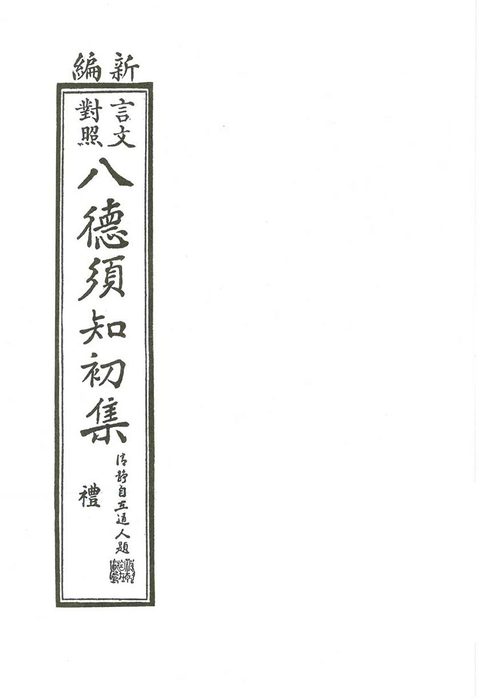 新編
言文
對照
八德須知初集
禮
清靜自道人題